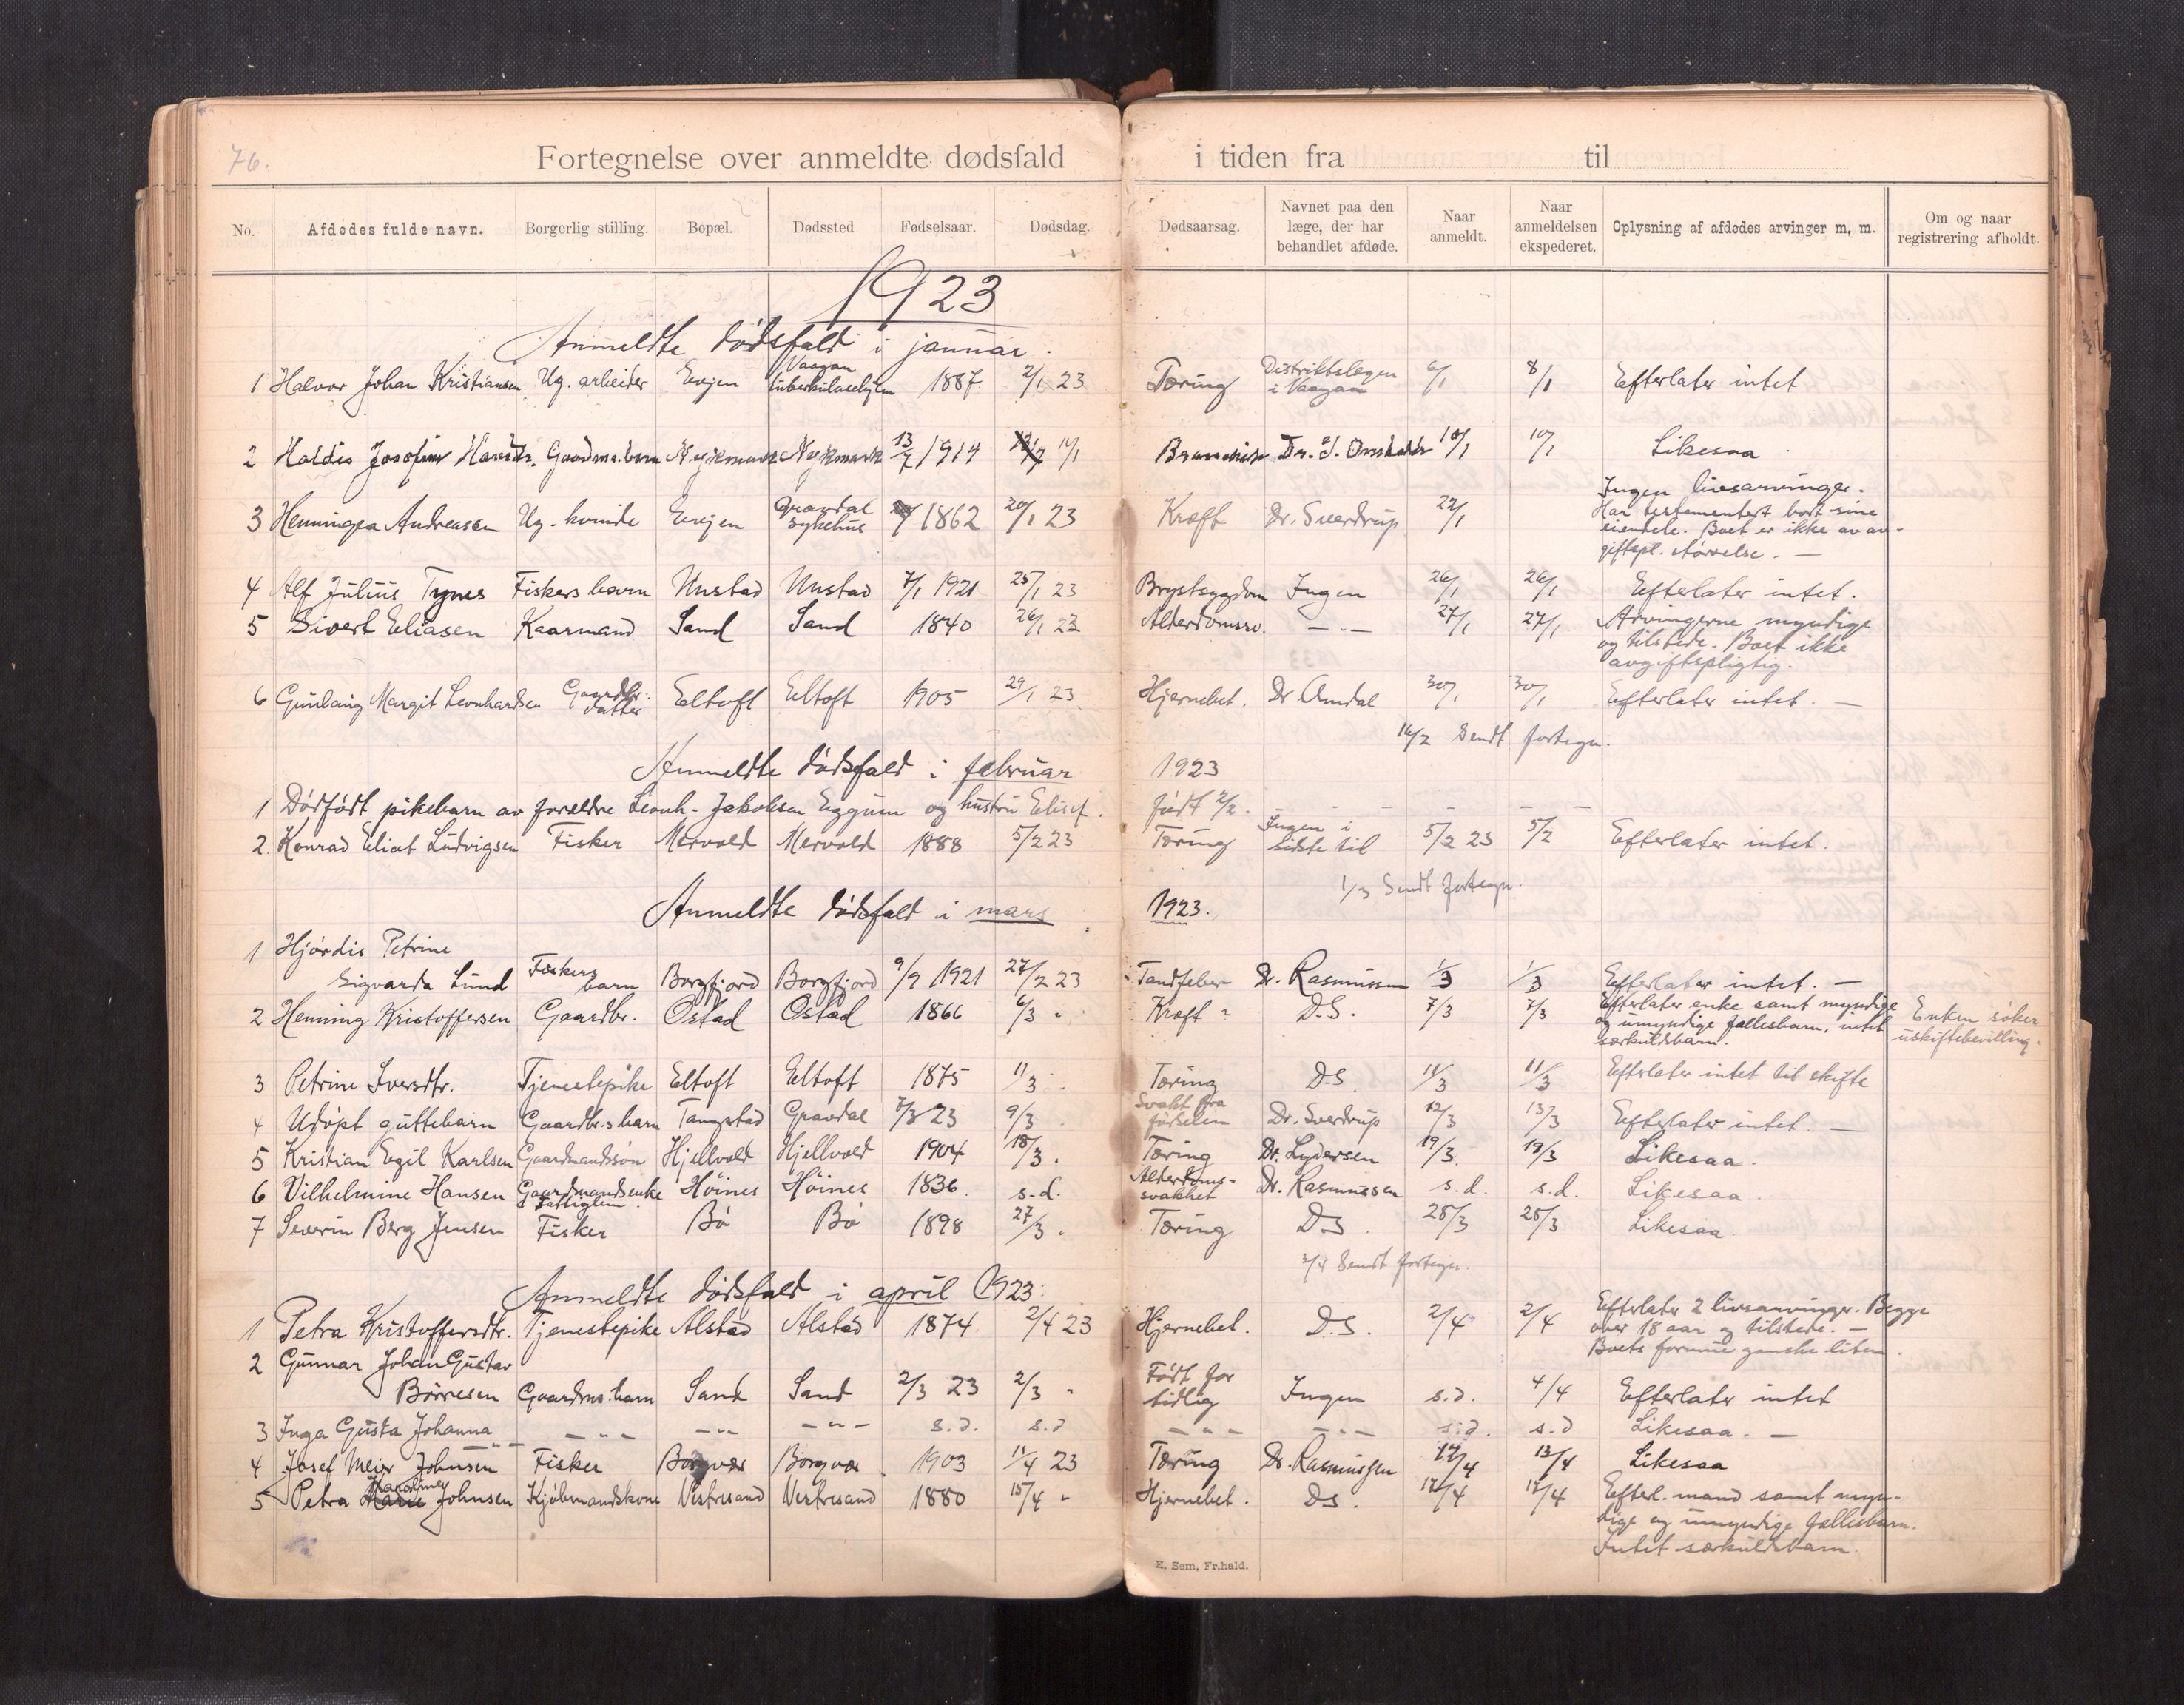 76.
Fortegnelse over anmeldte dødsfald i tiden fra til
No. Afdødes fulde navn. Borgerlig stilling. Bopæl. Dødssted Fødselsaar. Dødsdag. Dødsaarsag. Navnet paa den læge, der har behandlet afdøde. Naar anmeldt. Naar anmeldelsen ekspederet. Oplysning af afdødes arvinger m, m. Om og naar registrering afholdt.
1923
Anmeldte dødsfald i januar.
1 Halvor Johan Kristiansen Ug. arbeider Evejen Vaagan tuberkulosehjem 1887 2/1 23 Tæring Distriktslægen i Vaagan 6/1 8/1 Efterlater intet
2 Haldis Josefine Gaardm. barn 13/7 1914 14/1 Dr. J. 10/1 Likesaa
3 Henningea Andreassen Ug. kvinde Evejen Gravdal sykehus 1862 20/1 23 Kræft Dr. Sverdrup 22/1 Ingen livsarvinger.
Har testementert bort sine
eiendele. Boet er ikke av av-
giftspl. størrelse. —
4 Alf Julius Tynes Fiskers barn Unstad Unstad 7/1 1921 25/1 23 Brystsygdom Ingen 26/1 26/1 Efterlater intet.
5 Sivert Eliasen Kaarmand Sand Sand 1840 26/1 23 Alderdomssv. — " — 27/1 27/1 Arvingerne myndige
og tilstede. Boet ikke
avgiftspligtig.
6 Gunlaug Margit Leonhardsen Gaardbr. datter Eltoft Eltoft 1905 29/1 23 Hjernebet. Dr Amdal 30/1 30/1 Efterlater intet. —
16/2 Sendt fortegn.
Anmeldte dødsfald i februar 1923
1 Dødfødt pikebarn av forældre Leonh. Jakobsen Eggum og hustru Elisef. født 2/2. - - - - -
2. Konrad Eliot Ludvigsen Fisker Mervold Mervold 1888 5/2 23 Tæring Ingen i sidste tid 5/2 23 5/2 Efterlater intet.
1/3 Sendt fortegn.
Anmeldte dødsfald i mars 1923.
1 Hjørdis Petrine
Sigvarda Lund Fiskers barn Borgfjord Borgfjord 9/9 1921 27/2 23 Tandfeber Dr. Rasmussen 1/3 1/3 Efterlater intet. —
2 Henning Kristoffersen Gaardbr. Ostad Ostad 1866 6/3 " Kræft D.S. 7/3 7/3 Efterlater enke samt myndige
og umyndige fællesbarn, intet
særkuldsbarn. Enken søker
uskiftebevilling.
3 Petrine Iversdtr. Tjenestepike Eltoft Eltoft 1875 11/3 Tæring D.S 11/3 11/3 Efterlater intet til skifte
4 Udøpt guttebarn Gaardbr.s barn Tangstad Gravdal 7/3 23 9/3 Svakt fra fødselen Dr. Sverdrup 12/3 13/3 Efterlater intet. —
5 Kristian Egil Karlsen Gaardmandssøn Hjellvold Hjellvold 1904 18/3. Tæring Dr. Lydersen 19/3. 19/3 Likesaa.
6 Vilhelmine Hansen Gaardmandsenke Høines Høines 1836. s.d. Alderdoms-svakhet Dr. Rasmussen s.d. s.d. Likesaa.
7 Severin Berg Jensen Fisker Bø Bø 1898 27/3. Tæring D.S. 28/3 28/3 Likesaa
3/4 Sendt fortegn.
Anmeldte dødsfald i april 1923.
1 Petra Kristoffersdtr. Tjenestepike Alstad Alstad 1874 2/4 23 Hjernebet. D.S. 2/4 2/4 Efterlater 2 livsarvinger. Begge
over 18 aar og tilstede. —
Boets formue ganske liten.
2 Gunnar Johan Gustav
Børresen Gaardm. barn Sand Sand 2/3 23 2/3 " Født for tidlig Ingen s.d. 4/4 Efterlater intet
3 Inga Gusta Johanna — " — — " — — " — — " — s.d. s.d — " — — " — s.d. s.d Likesaa. —
4 Josef Meier Johnsen Fisker Borgvær Borgvær 1903 11/4 23 Tæring Dr. Rasmussen 12/4 13/4 Likesaa
5 Petra Johnsen Kjøbmandskone Vestresand Vestresand 1880 15/4 " Hjernebet. DS. 17/4 17/4 Efterl. mand samt myn-
dige og umyndige fællesbarn.
Intet særkuldsbarn.
E. Sem, Fr.hald.